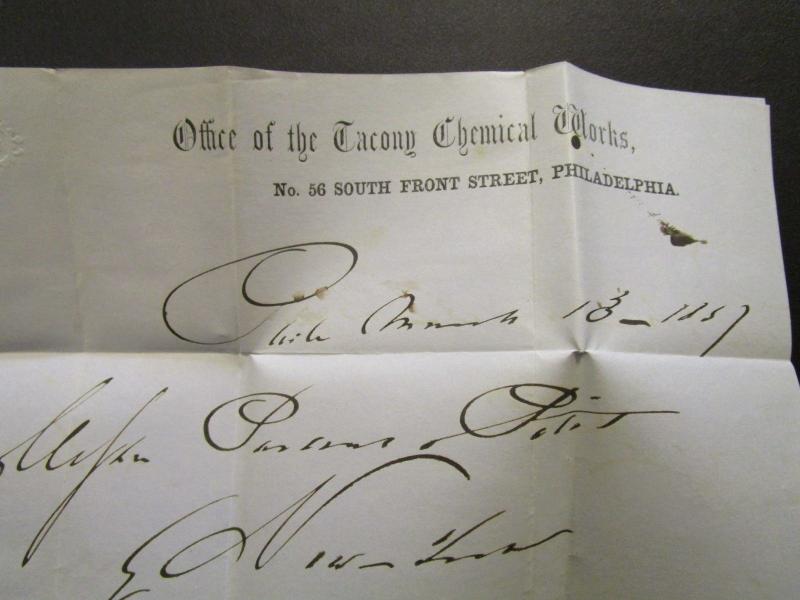 Office of the Tacony Chemical Works,
No. 56 SOUTH FRONT STREET, PHILADELPHIA.
Phila March 13 - 1857
Messrs Parsons & Petit
New-York